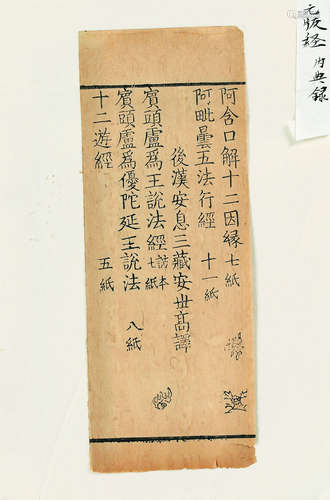 元版経 内典録
阿含口解十二因縁 七紙
阿毗曇五法行經 十一紙
後漢安息三藏安世高譯
賓頭盧為王說法經 訪本七紙
賓頭盧為優陀延王說法 八紙
十二遊經 五紙